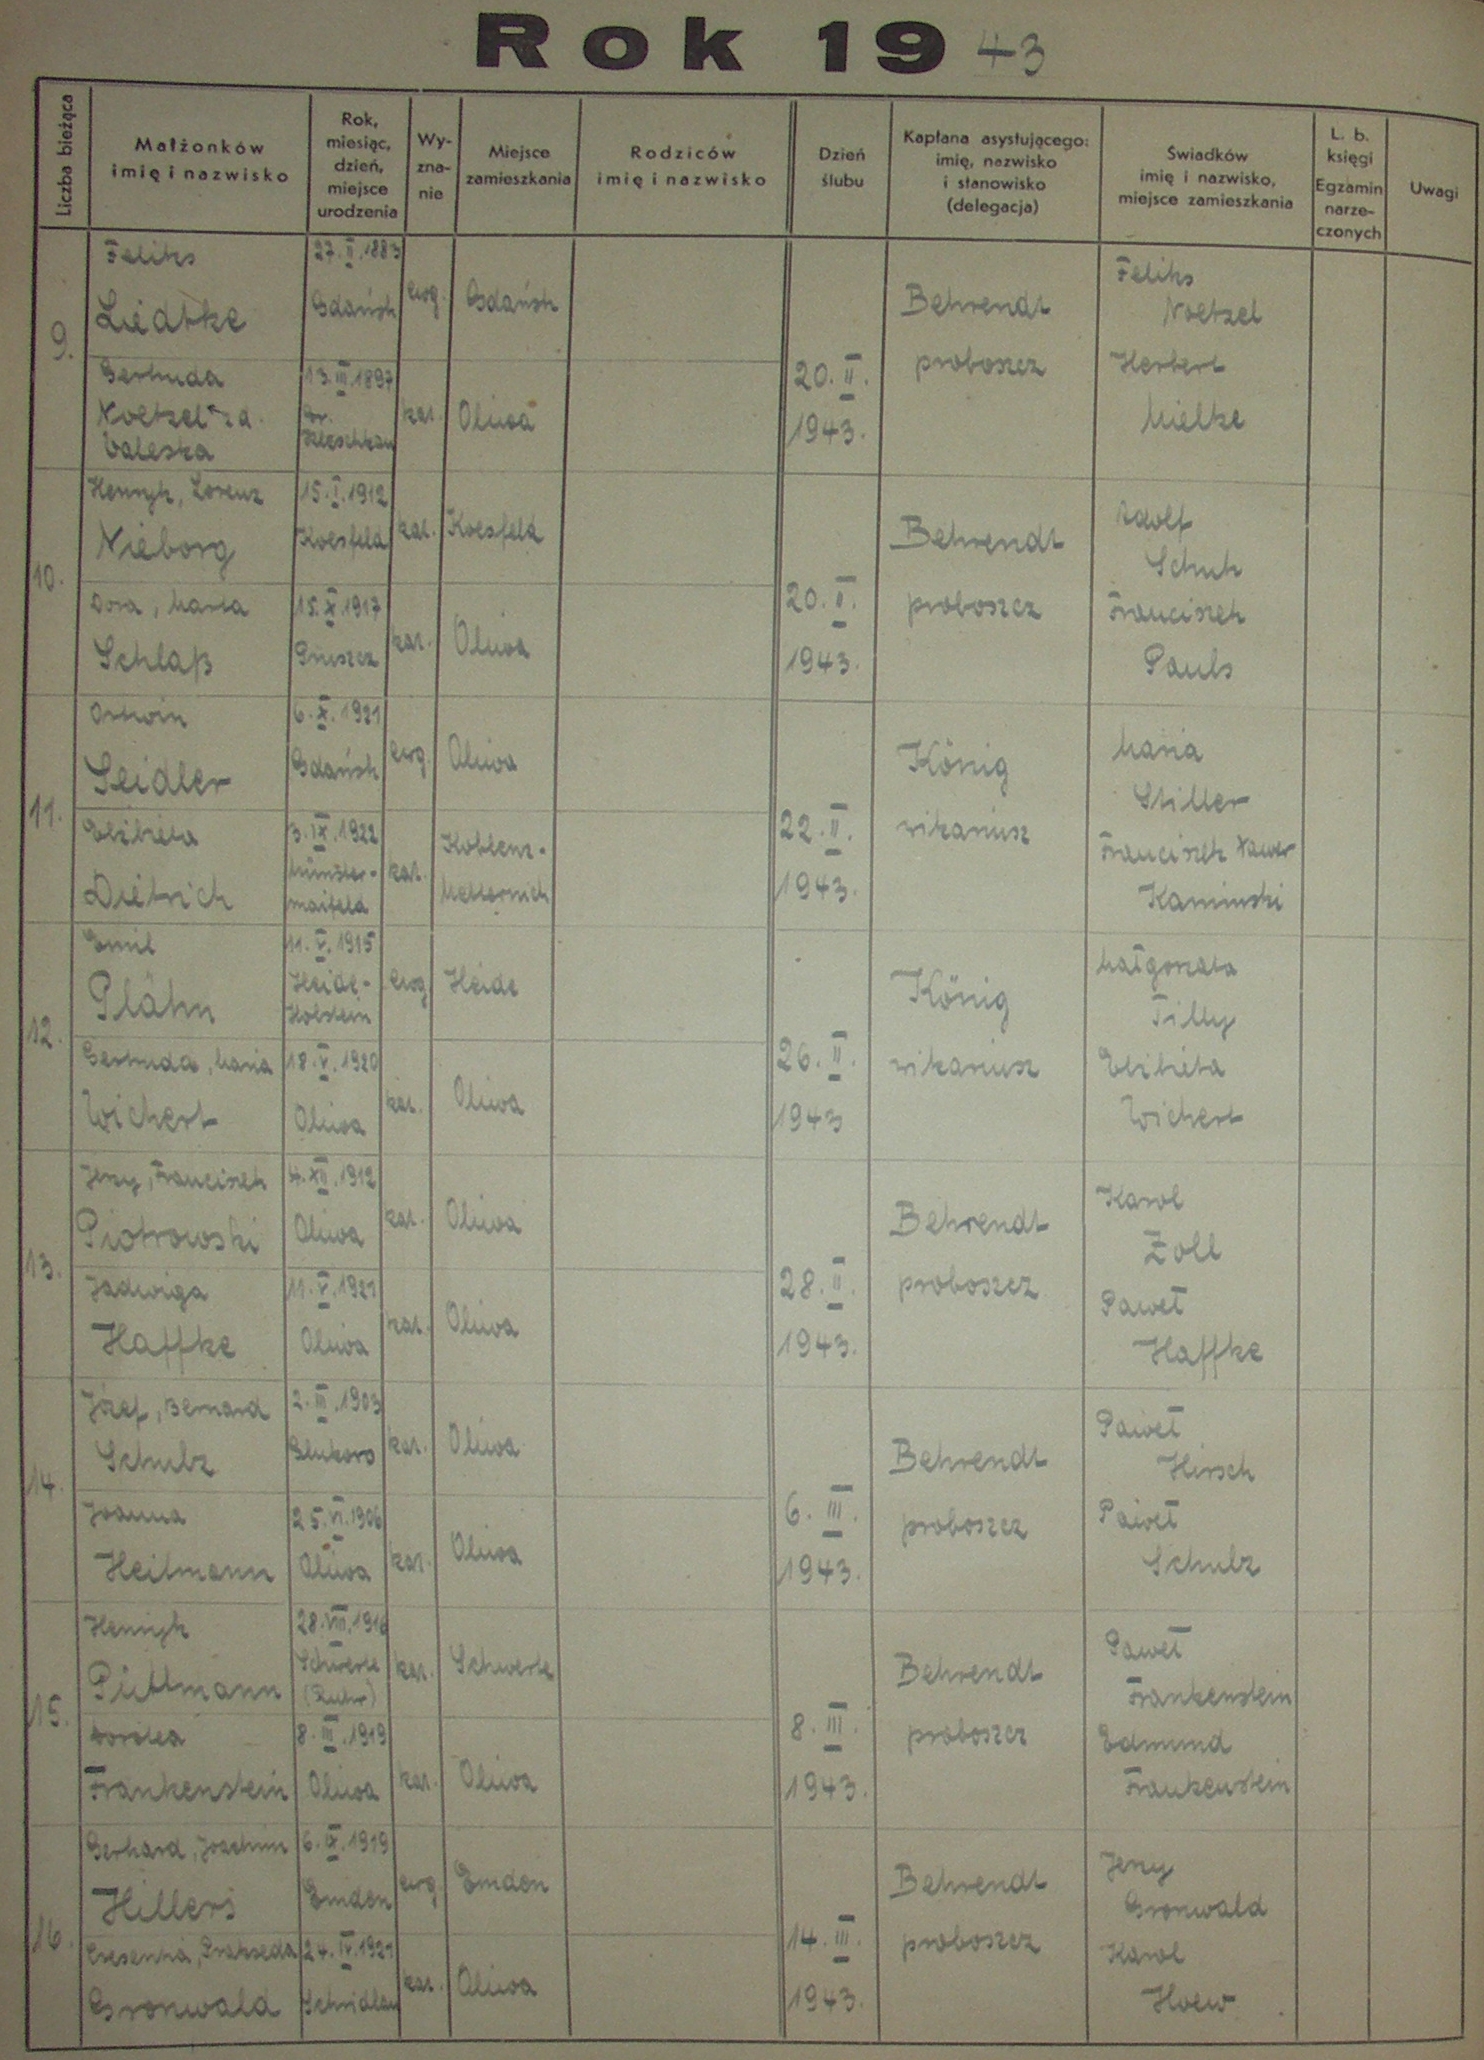 Rok 1943
Liczba bieżąca
Małżonków
imię i nazwisko
Rok,
miesiąc,
dzień,
miejsce
urodzenia
Wy-
zna-
nie
Miejsce
zamieszkania
Rodziców
imię i nazwisko
Dzień
ślubu
Kapłana asystującego:
imię, nazwisko
i stanowisko
(delegacja)
Świadków
imię i nazwisko,
miejsce zamieszkania
L. b.
księgi
Egzamin
narze-
czonych
Uwagi
9.
Feliks
Liedtke
27.II.1883
Gdańsk
ewg.
Gdańsk
Gertruda
Noetzel
Valeska
13.III.1897
Gr.
Kleschkau
kat.
Oliwa
20.II.
1943.
Behrendt
proboszcz
Feliks
Noetzel
Herbert
Mielke
10.
Henryk, Lorenz
Nieborg
15.I.1912
Koesfeld
kat.
Koesfeld
Dora, Maria
Schlaß
15.X.1917
Pruszcz
kat.
Oliwa
20.II.
1943.
Behrendt
proboszcz
Adolf
Schuh
Franciszek
Pauls
11.
Ortwin
Seidler
6.X.1921
Gdańsk
ewg.
Oliwa
Elżbieta
Dietrich
3.IX.1922
Münster-
maifeld
kat.
Koblenz-
Metternich
22.II.
1943.
König
wikariusz
Maria
Stiller
Franciszek Xawer
Kaminski
12.
Emil
Plähn
11.V.1915
Heide-
Holstein
ewg
Heide
Gertruda, Maria
Wichert
18.V.1920
Oliwa
kat.
Oliwa
26.II.
1943
König
wikariusz
Małgorzata
Tilly
Elżbieta
Wichert
13.
Jerzy, Franciszek
Piotrowski
4.XII.1912
Oliwa
kat.
Oliwa
Jadwiga
Haffke
11.V.1921
Oliwa
kat.
Oliwa
28.II.
1943.
Behrendt
proboszcz
Karol
Zoll
Paweł
Haffke
14.
Józef, Bernard
Schulz
2.III.1903
kat.
Oliwa
Joanna
Heilmann
25.VI.1906
Oliwa
kat.
Oliwa
6.III.
1943.
Behrendt
proboszcz
Paweł
Hirsch
Paweł
Schulz
15.
Henryk
Püttmann
28.VIII.1916
Schwerte
(Ruhr)
kat.
Schwerte
Dorotea
Frankenstein
8.III.1919
Oliwa
kat.
Oliwa
8.III.
1943.
Behrendt
proboszcz
Paweł
Frankenstein
Edmund
Frankenstein
16.
Gerhard, Joachim
Hillers
6.IX.1919
Emden
ewg
Emden
Prakseda
Gronwald
24.IV.1921
kat.
Oliwa
14.III.
1943.
Behrendt
proboszcz
Jerzy
Gronwald
Karol
Hoew